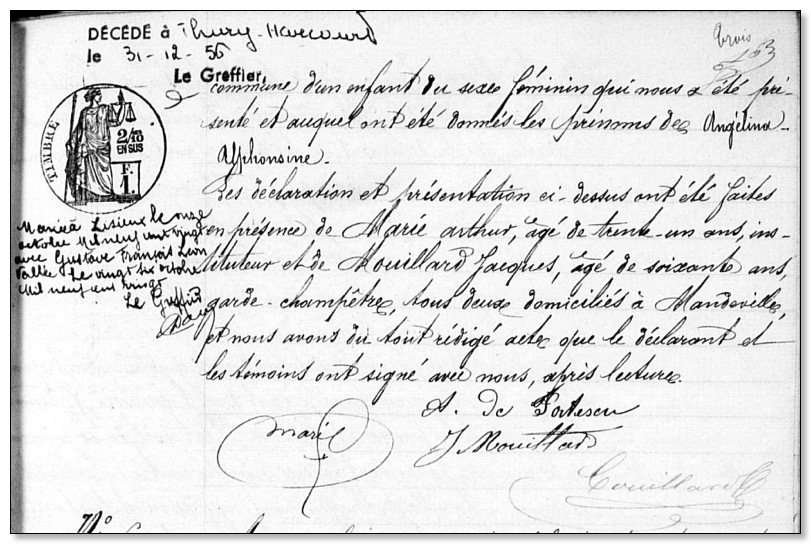 DÉCÉDÉ à Thury-Harcourt
le 31-12-56
Le Greffier,
trois
TIMBRE
2/10
EN SUS
F.
1.
Mariée à Lisieux le onze
octobre mil neuf cent vingt
avec Gustave François Léon
Vallée Le vingt six octobre
Mil neuf cent vingt
Le Greffier
commune d'un enfant du sexe féminin qui nous a été pré-
senté et auquel ont été donnés les prénoms de Angélina-
Alphonsine.
Les déclaration et présentation ci-dessus ont été faites
en présence de Marie arthur, âgé de trente-un ans, ins-
tituteur et de Mouillard Jacques, âgé de soixante ans,
garde-champêtre, tous deux domiciliés à Mandeville,
et nous avons du tout rédigé acte que le déclarant et
les témoins ont signé avec nous, après lecture.
A. De Portescu
Marie
J Mouillard
Couillard